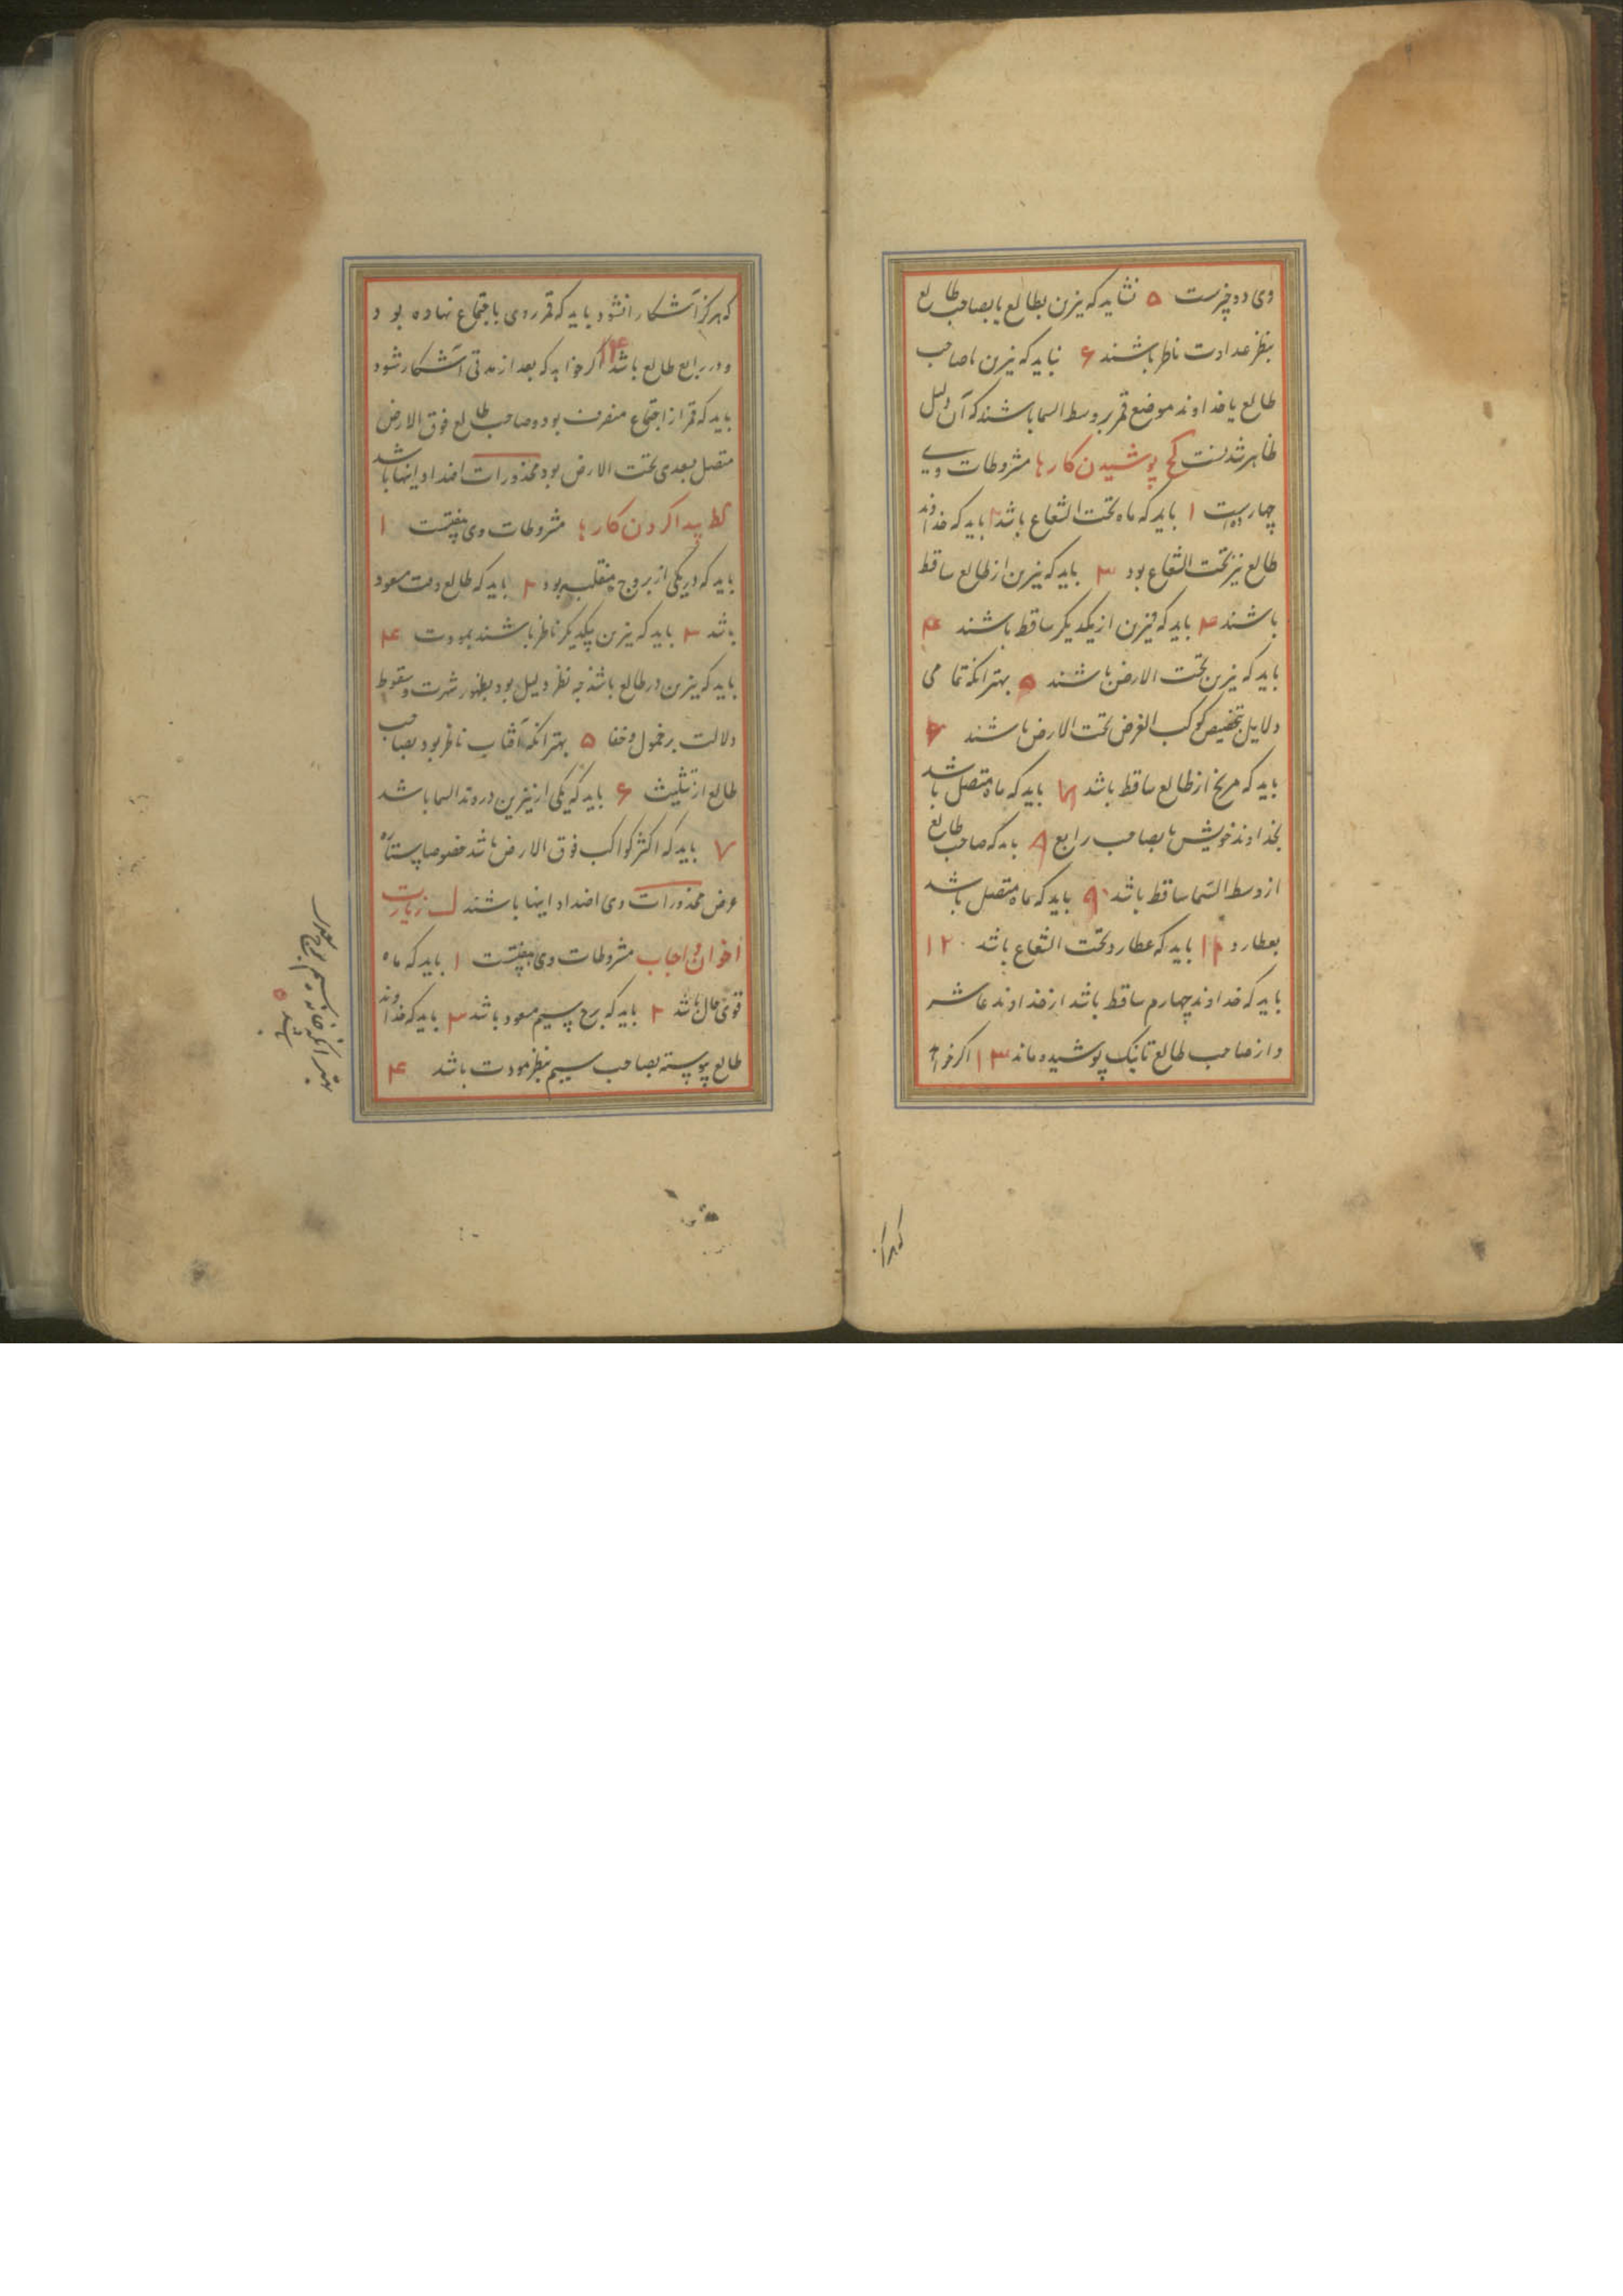 وی دو چیزست ۵ نشاید که نیرین بطالع یا بصاحب طالع
بنظر عداوت ناظر باشند ۶ نباید که نیرین با صاحب
طالع یا خداوند موضع قمر بر وسط السما باشند که آن دلیل
ظاهر شدنست کح پوشیدن کارها مشروطات وی
چهارده است ۱ باید که ماه تحت الشعاع باشد ۲ باید که خداوند
طالع نیز تحت الشعاع بود ۳ باید که نیرین از طالع ساقط
باشند ۴ باید که نیرین از یکدیگر ساقط باشند ۴
باید که نیرین تحت الارض باشند ۵ بهتر انکه تمامی
دلایل بتخصیص کوکب الغرض تحت الارض باشند ۶
باید که مریخ از طالع ساقط باشد باید که ماه متصل باشد
بخداوند خویش یا بصاحب رابع ۹ باید که صاحب طالع
از وسط السما ساقط باشد ۹ باید که ماه متصل باشد
بعطارد ۱۱ باید که عطارد تحت الشعاع باشد ۱۲
باید که خداوند چهارم ساقط باشد از خداوند عاشر
و از صاحب طالع تا نیک پوشیده ماند ۱۳ اگر خواهد
که هرگز آ
که هرگز آشکارا نشود باید که قمر روی باجتماع نهاده بود
و در رابع طالع باشد ۱۴ اگر خواهد که بعد از مدتی آشکار شود
باید که قمر از اجتماع منصرف بود و صاحب طالع فوق الارض
متصل بسعدی تحت الارض بود محذورات اضداد اینها باشد
کط پیدا کردن کارها مشروطات وی هفتست ۱
باید که در یکی از بروج منقلبه بود ۲ باید که طالع وقت مسعود
باشد ۳ باید که نیرین بیکدیگر ناظر باشند بمودت ۴
باید که نیرین در طالع باشند چه نظر دلیل بود بظهور شهرت و سقوط
دلالت بر خمول و خفا ۵ بهتر انکه آفتاب ناظر بود بصاحب
طالع از تثلیث ۶ باید که یکی از نیرین در وتد السما باشد
۷ باید که اکثر کواکب فوق الارض باشد خصوصا ستاره
غرض محذورات وی اضداد اینها باشند ل زیارت
اخوان و احباب مشروطات وی هفتست ۱ باید که ماه
قوی حال باشد ۲ باید که برج سیم مسعود باشد ۳ باید که خداوند
طالع پیوسته بصاحب سیم بنظر مودت باشد ۴
بهتر انکه خانه سیم برج
باشد ۵